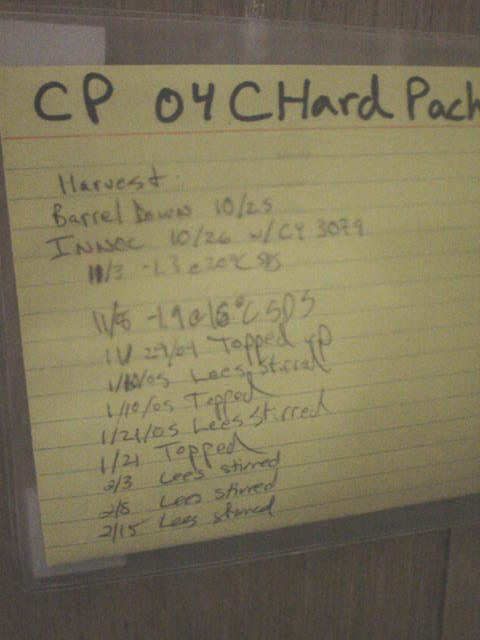 CP 04 CHard Pach
Harvest
Barrel Down 10/25
INNOC 10/26 w/ CY 3079
11/3 -1.3 @ 20°C
11/8 -1.9 @ 16°C
11/29/04 Topped up
Lees Stirred
1/10/05 Topped
1/21/05 Lees Stirred
1/21 Topped
2/3 Lees stirred
2/8 Lees stirred
2/15 Lees stirred